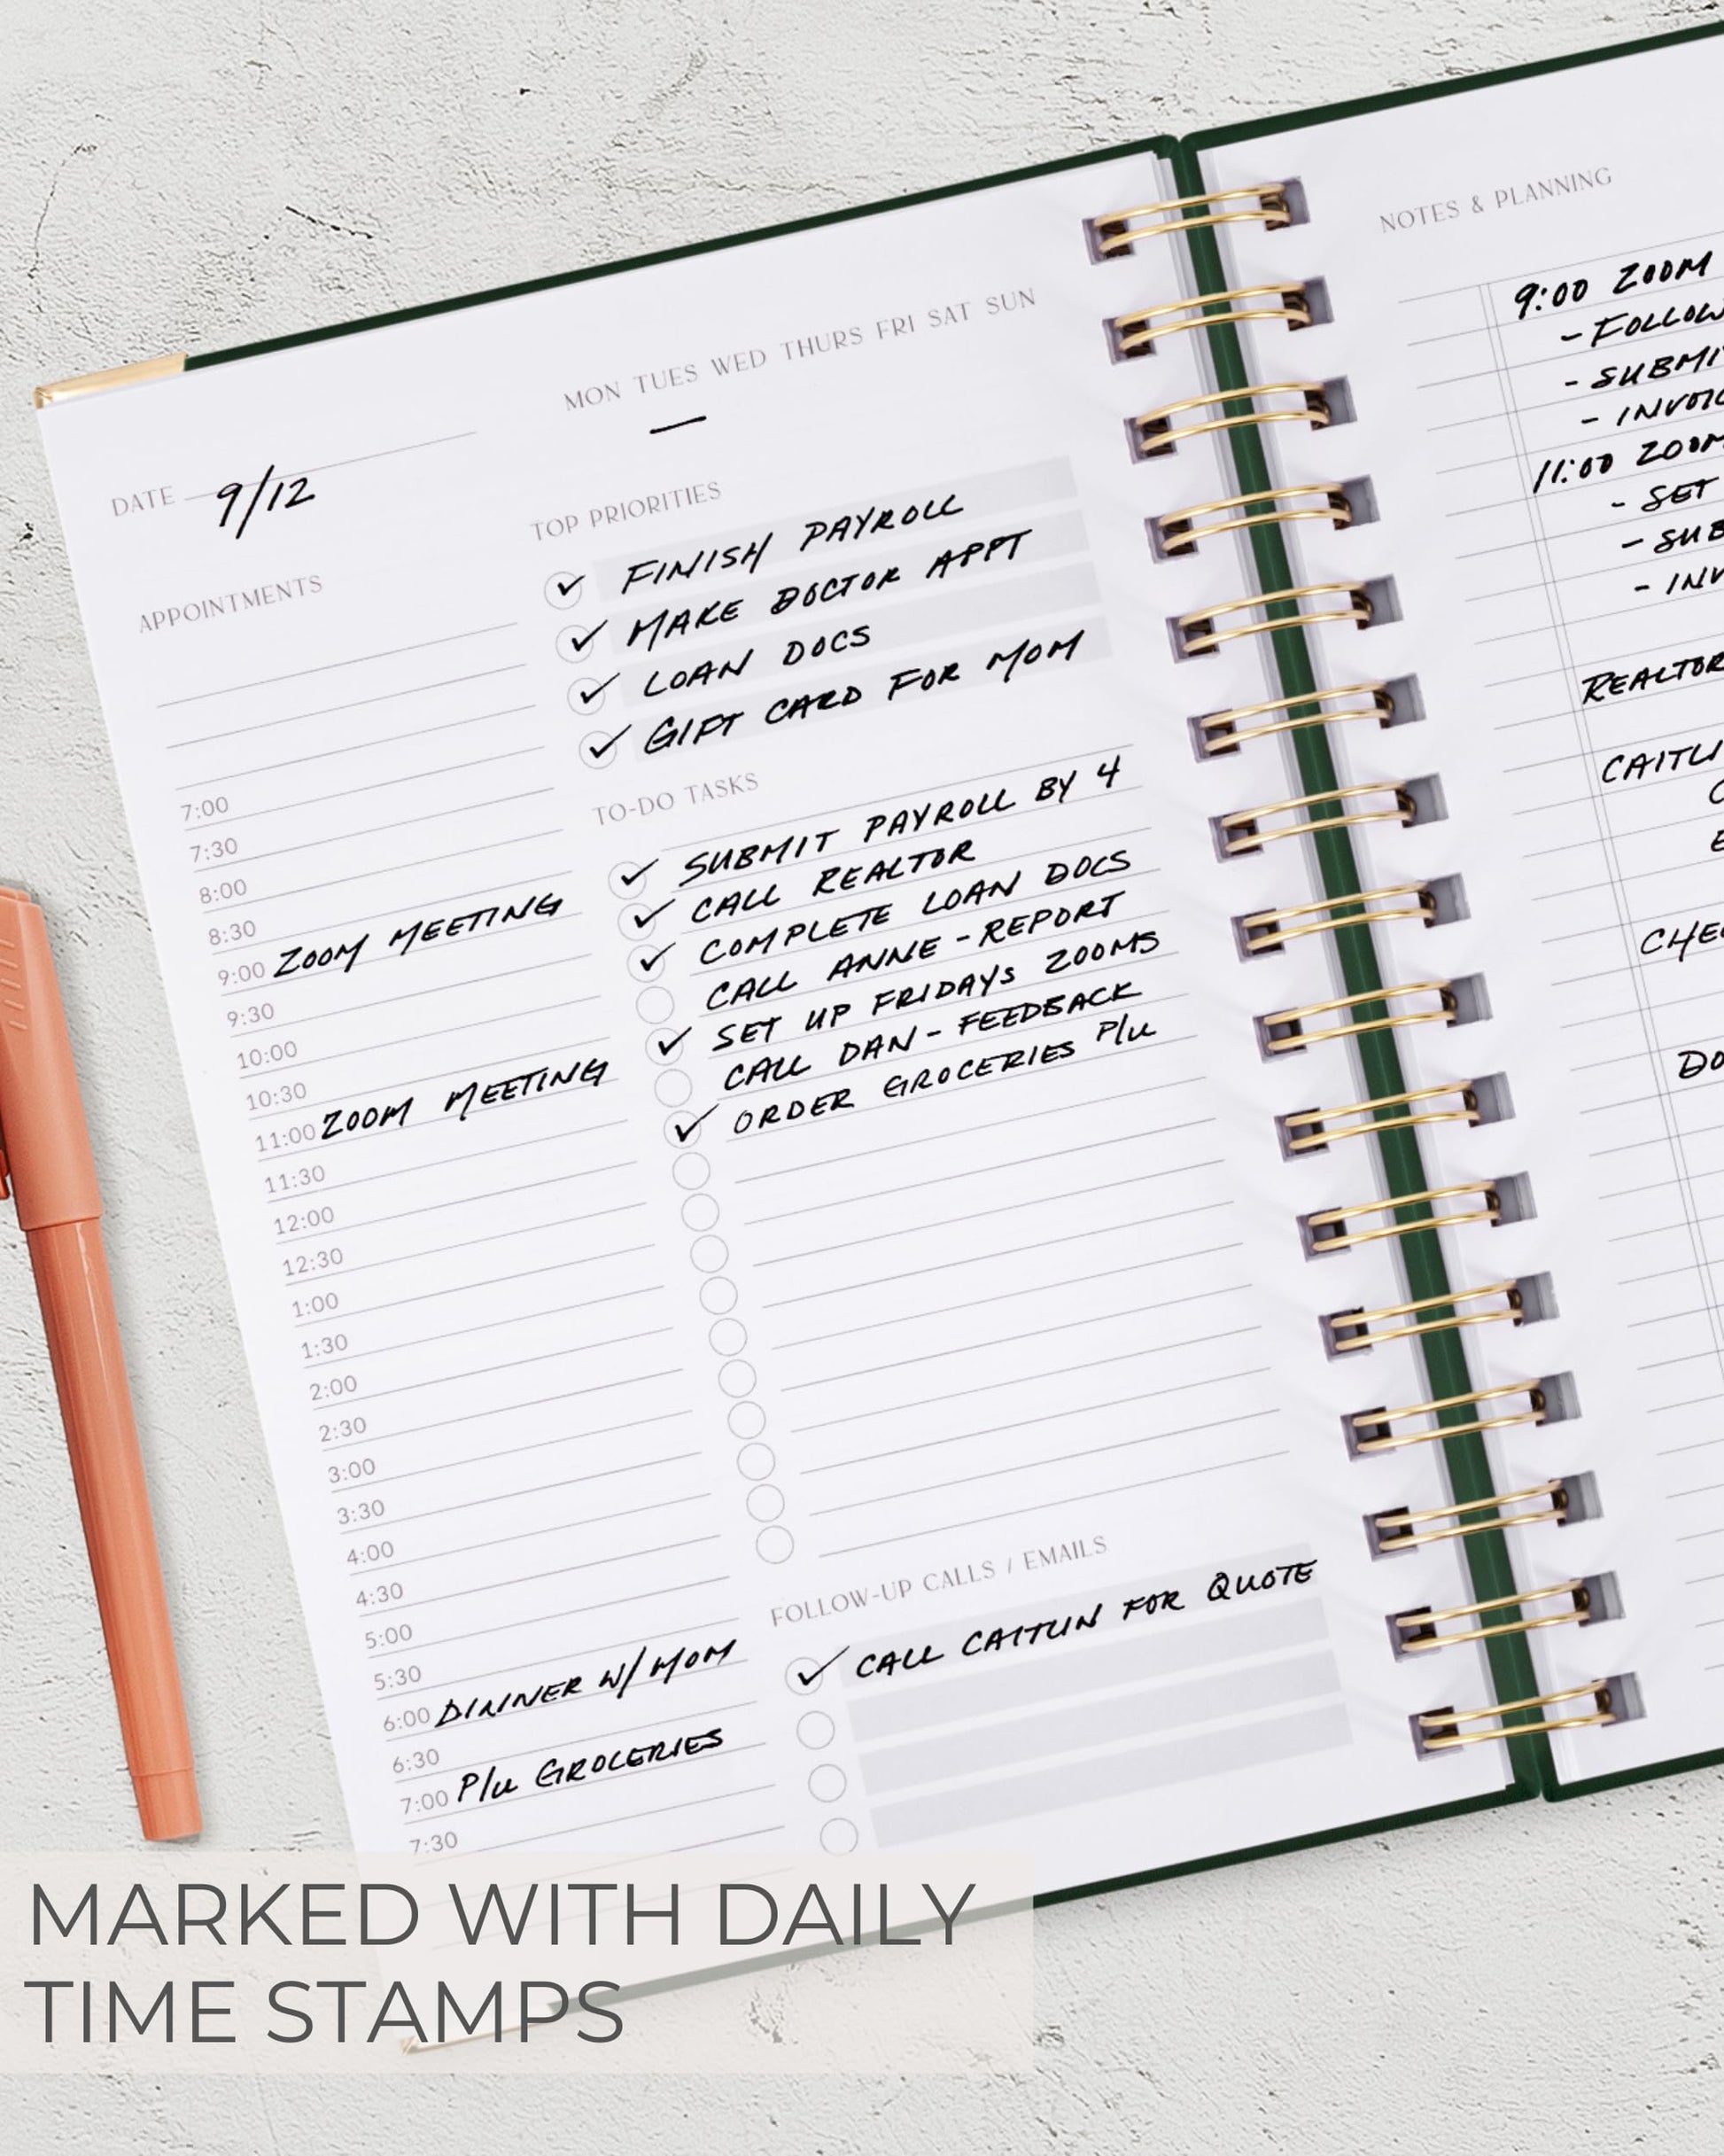 MON TUES WED THURS FRI SAT SUN
DATE 9/12
APPOINTMENTS
7:00
7:30
8:00
8:30
9:00 ZOOM MEETING
9:30
10:00
10:30
11:00 ZOOM MEETING
11:30
12:00
12:30
1:00
1:30
2:00
2:30
3:00
3:30
4:00
4:30
5:00
5:30
6:00 DINNER W/ MOM
6:30
7:00 P/U GROCERIES
7:30
TOP PRIORITIES
FINISH PAYROLL
MAKE DOCTOR APPT
LOAN DOCS
GIFT CARD FOR MOM
TO-DO TASKS
SUBMIT PAYROLL BY 4
CALL REALTOR
COMPLETE LOAN DOCS
CALL ANNE - REPORT
SET UP FRIDAYS ZOOMS
CALL DAN - FEEDBACK
ORDER GROCERIES P/U
FOLLOW-UP CALLS / EMAILS
CALL CAITLIN FOR QUOTE
NOTES & PLANNING
9:00 ZOOM
- FOLLOW
- SUBMIT
- INVOIC
11:00 ZOOM
- SET
- SUB
- INV
REALTOR
CAITLI
CHEC
DO
MARKED WITH DAILY
TIME STAMPS